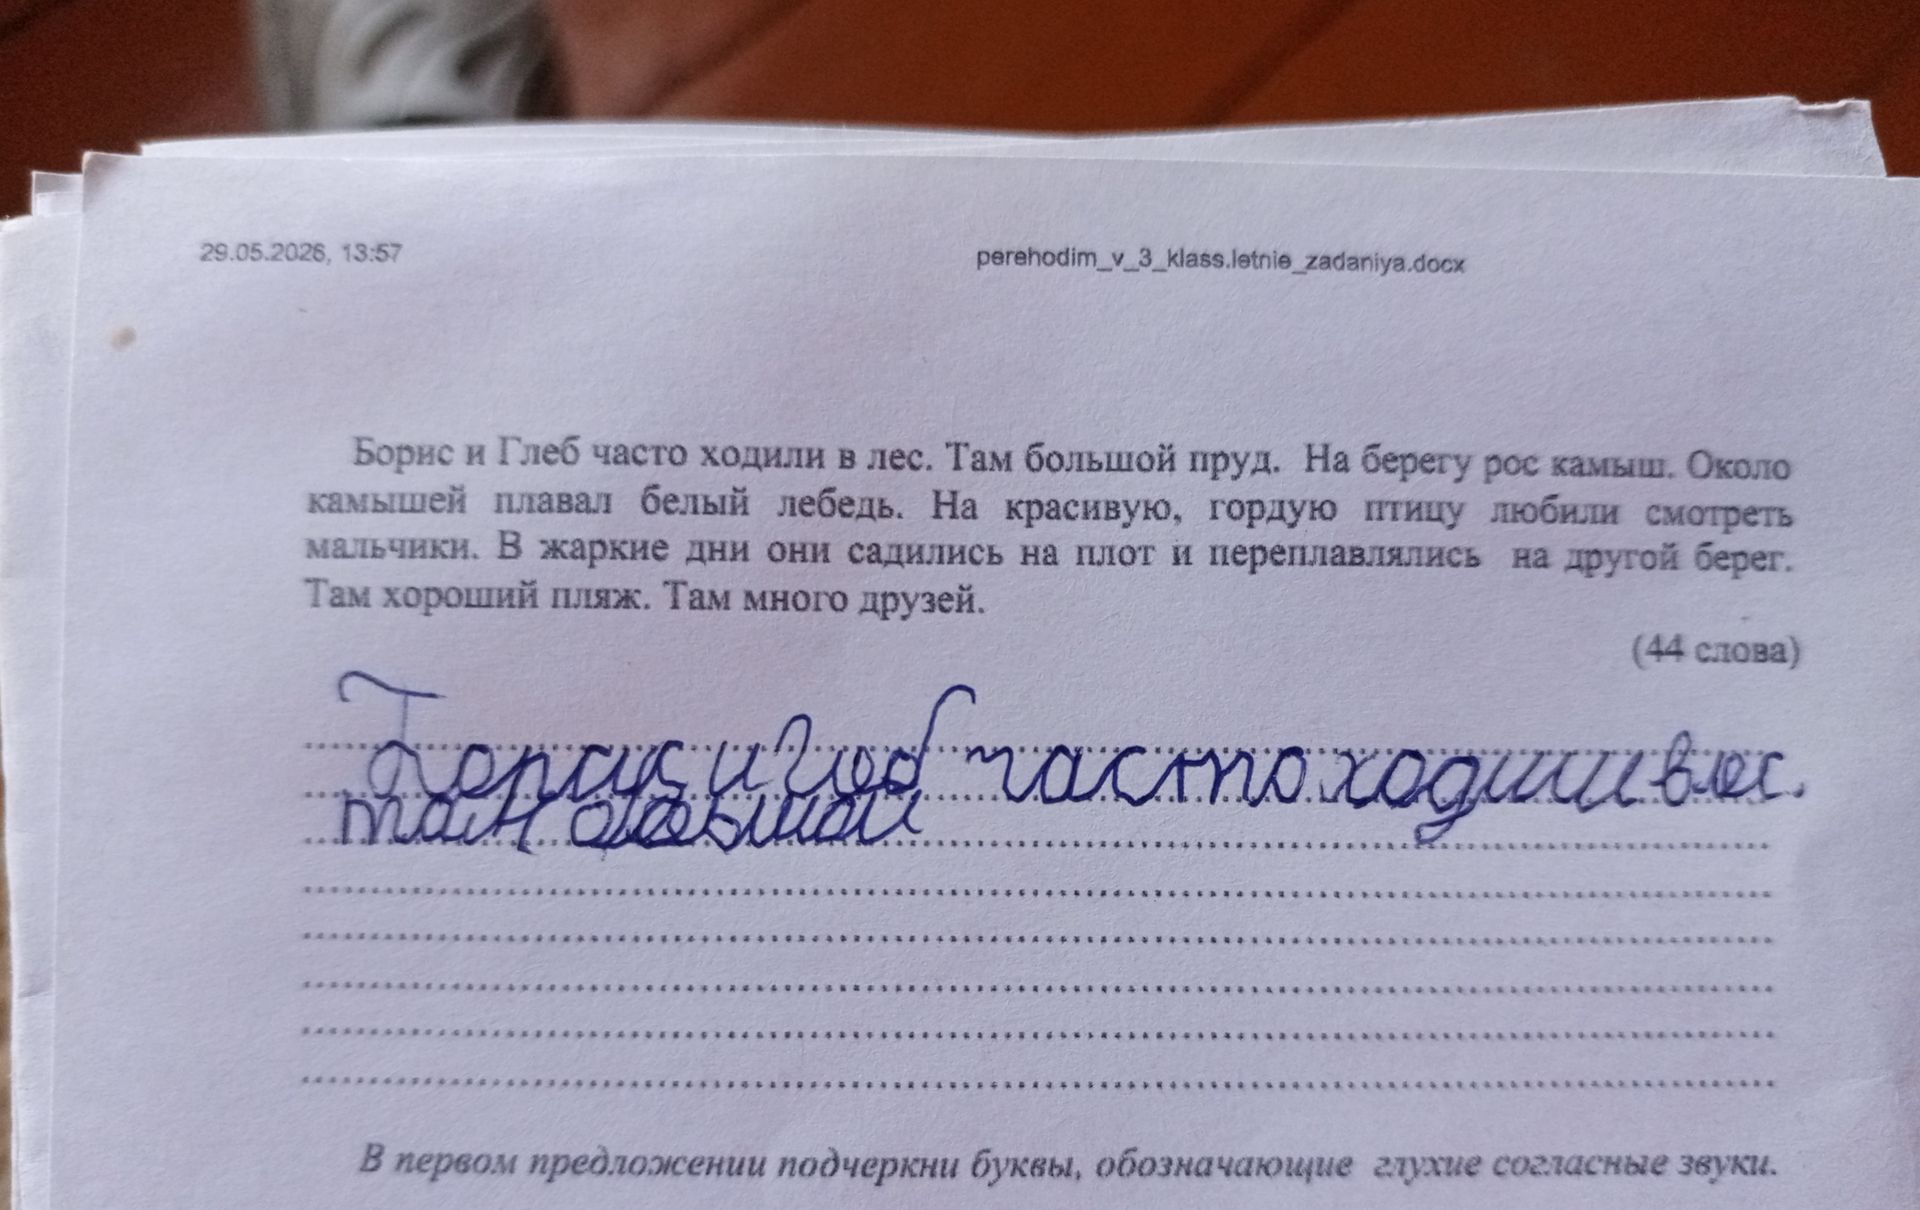 29.05.2026, 13:57 perehodim_v_3_klass.letnie_zadaniya.docx
Борис и Глеб часто ходили в лес. Там большой пруд. На берегу рос камыш. Около
камышей плавал белый лебедь. На красивую, гордую птицу любили смотреть
мальчики. В жаркие дни они садились на плот и переплавлялись на другой берег.
Там хороший пляж. Там много друзей.
(44 слова)
Борис и Глеб часто ходили в лес.
там большой
В первом предложении подчеркни буквы, обозначающие глухие согласные звуки.